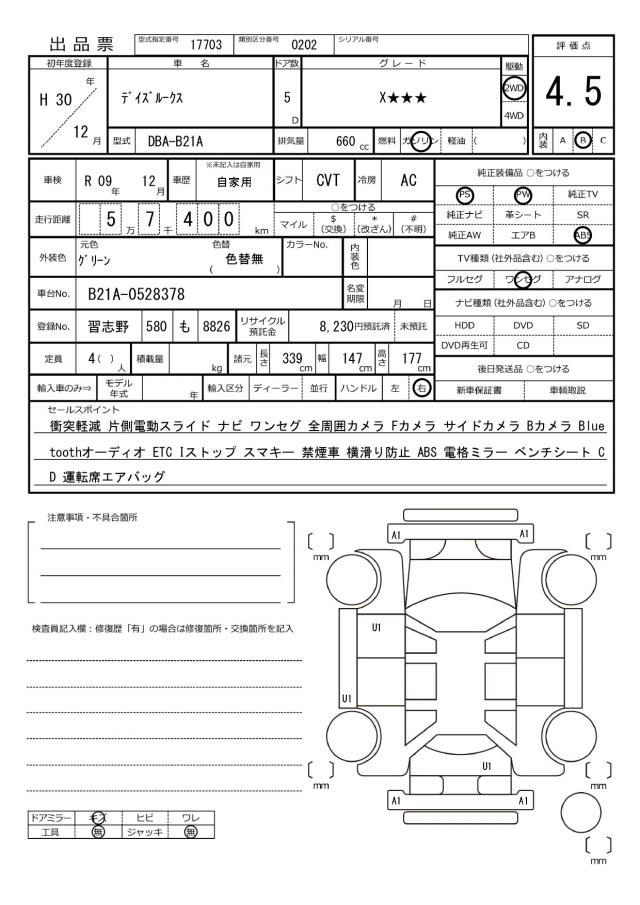 出品票 型式指定番号 17703 類別区分番号 0202 シリアル番号
評価点
4.5
内装 A B C
初年度登録 車名 ドア数 グレード 駆動
H 30 年 12 月 デイズルークス 5 D X★★★ 2WD 4WD
型式 DBA-B21A 排気量 660 cc 燃料 ガソリン 軽油 ( )
車検 R 09 年 12 月 車歴 ※未記入は自家用 自家用 シフト CVT 冷房 AC
走行距離 5 万 7 千 4 0 0 km ○をつける
マイル $ (交換) * (改ざん) # (不明)
外装色 元色 グリーン 色替 ( 色替無 ) カラーNo. 内装色
車台No. B21A-0528378 名変期限 月 日
登録No. 習志野 580 も 8826 リサイクル預託金 8,230円預託済 未預託
定員 4( ) 人 積載量 kg 諸元 長さ 339 cm 幅 147 cm 高さ 177 cm
輸入車のみ⇒ モデル年式 年 輸入区分 ディーラー 並行 ハンドル 左 右
純正装備品 ○をつける
PS PW 純正TV
純正ナビ 革シート SR
純正AW エアB ABS
TV種類(社外品含む)○をつける
フルセグ ワンセグ アナログ
ナビ種類(社外品含む)○をつける
HDD DVD SD
DVD再生可 CD
後日発送品 ○をつける
新車保証書 車輌取説
セールスポイント
衝突軽減 片側電動スライド ナビ ワンセグ 全周囲カメラ Fカメラ サイドカメラ Bカメラ Blue
toothオーディオ ETC Iストップ スマキー 禁煙車 横滑り防止 ABS 電格ミラー ベンチシート C
D 運転席エアバッグ
注意事項・不具合箇所
検査員記入欄:修復歴「有」の場合は修復箇所・交換箇所を記入
ドアミラー キズ ヒビ ワレ
工具 無 ジャッキ 無
A1 A1
[ ] mm [ ] mm
U1
U1
U1
[ ] mm [ ] mm
A1 A1
[ ] mm